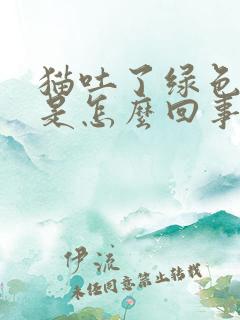 猫吐了绿色
是怎麼回事
伊流
未经同意禁止转载